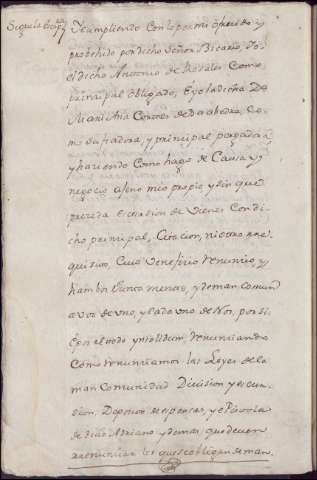 Y cumpliendo Con lo por mi ofrecido y
prohebido por dicho Señor Bicario, Yo
el dicho Antonio de Rosales Como
principal obligado, E yo la dicha Da
Maria Ana Cortes de Saabedra, Co
mo su fiadora, y principal pagadora
y haciendo Como hago de Causa y
negocio ajeno mio propio y sin que
preceda Escusion de Vienes Con di
cho principal, Citacion, ni otro rre
quisito, Cuio Veneficio renuncio, y
hambos Juntos menas, y de man comun
a vos de uno, y Cada uno de Nos, por si
E por el todo ynsolidum, renunciando
Como renunciamos las Leyes de la
man Comunidad Division y escur
sion, Deposito de espensas, y Epistola
de divo Adriano y demas, que deven
rrenunciar los que se obligan de man